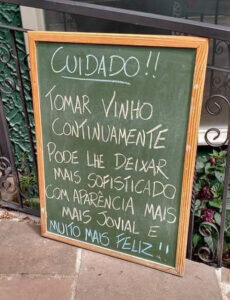 CUIDADO!!
TOMAR VINHO
CONTINUAMENTE
PODE LHE DEIXAR
MAIS SOFISTICADO
COM APARÊNCIA MAIS
MAIS JOVIAL E
MUITO MAIS FELIZ!!